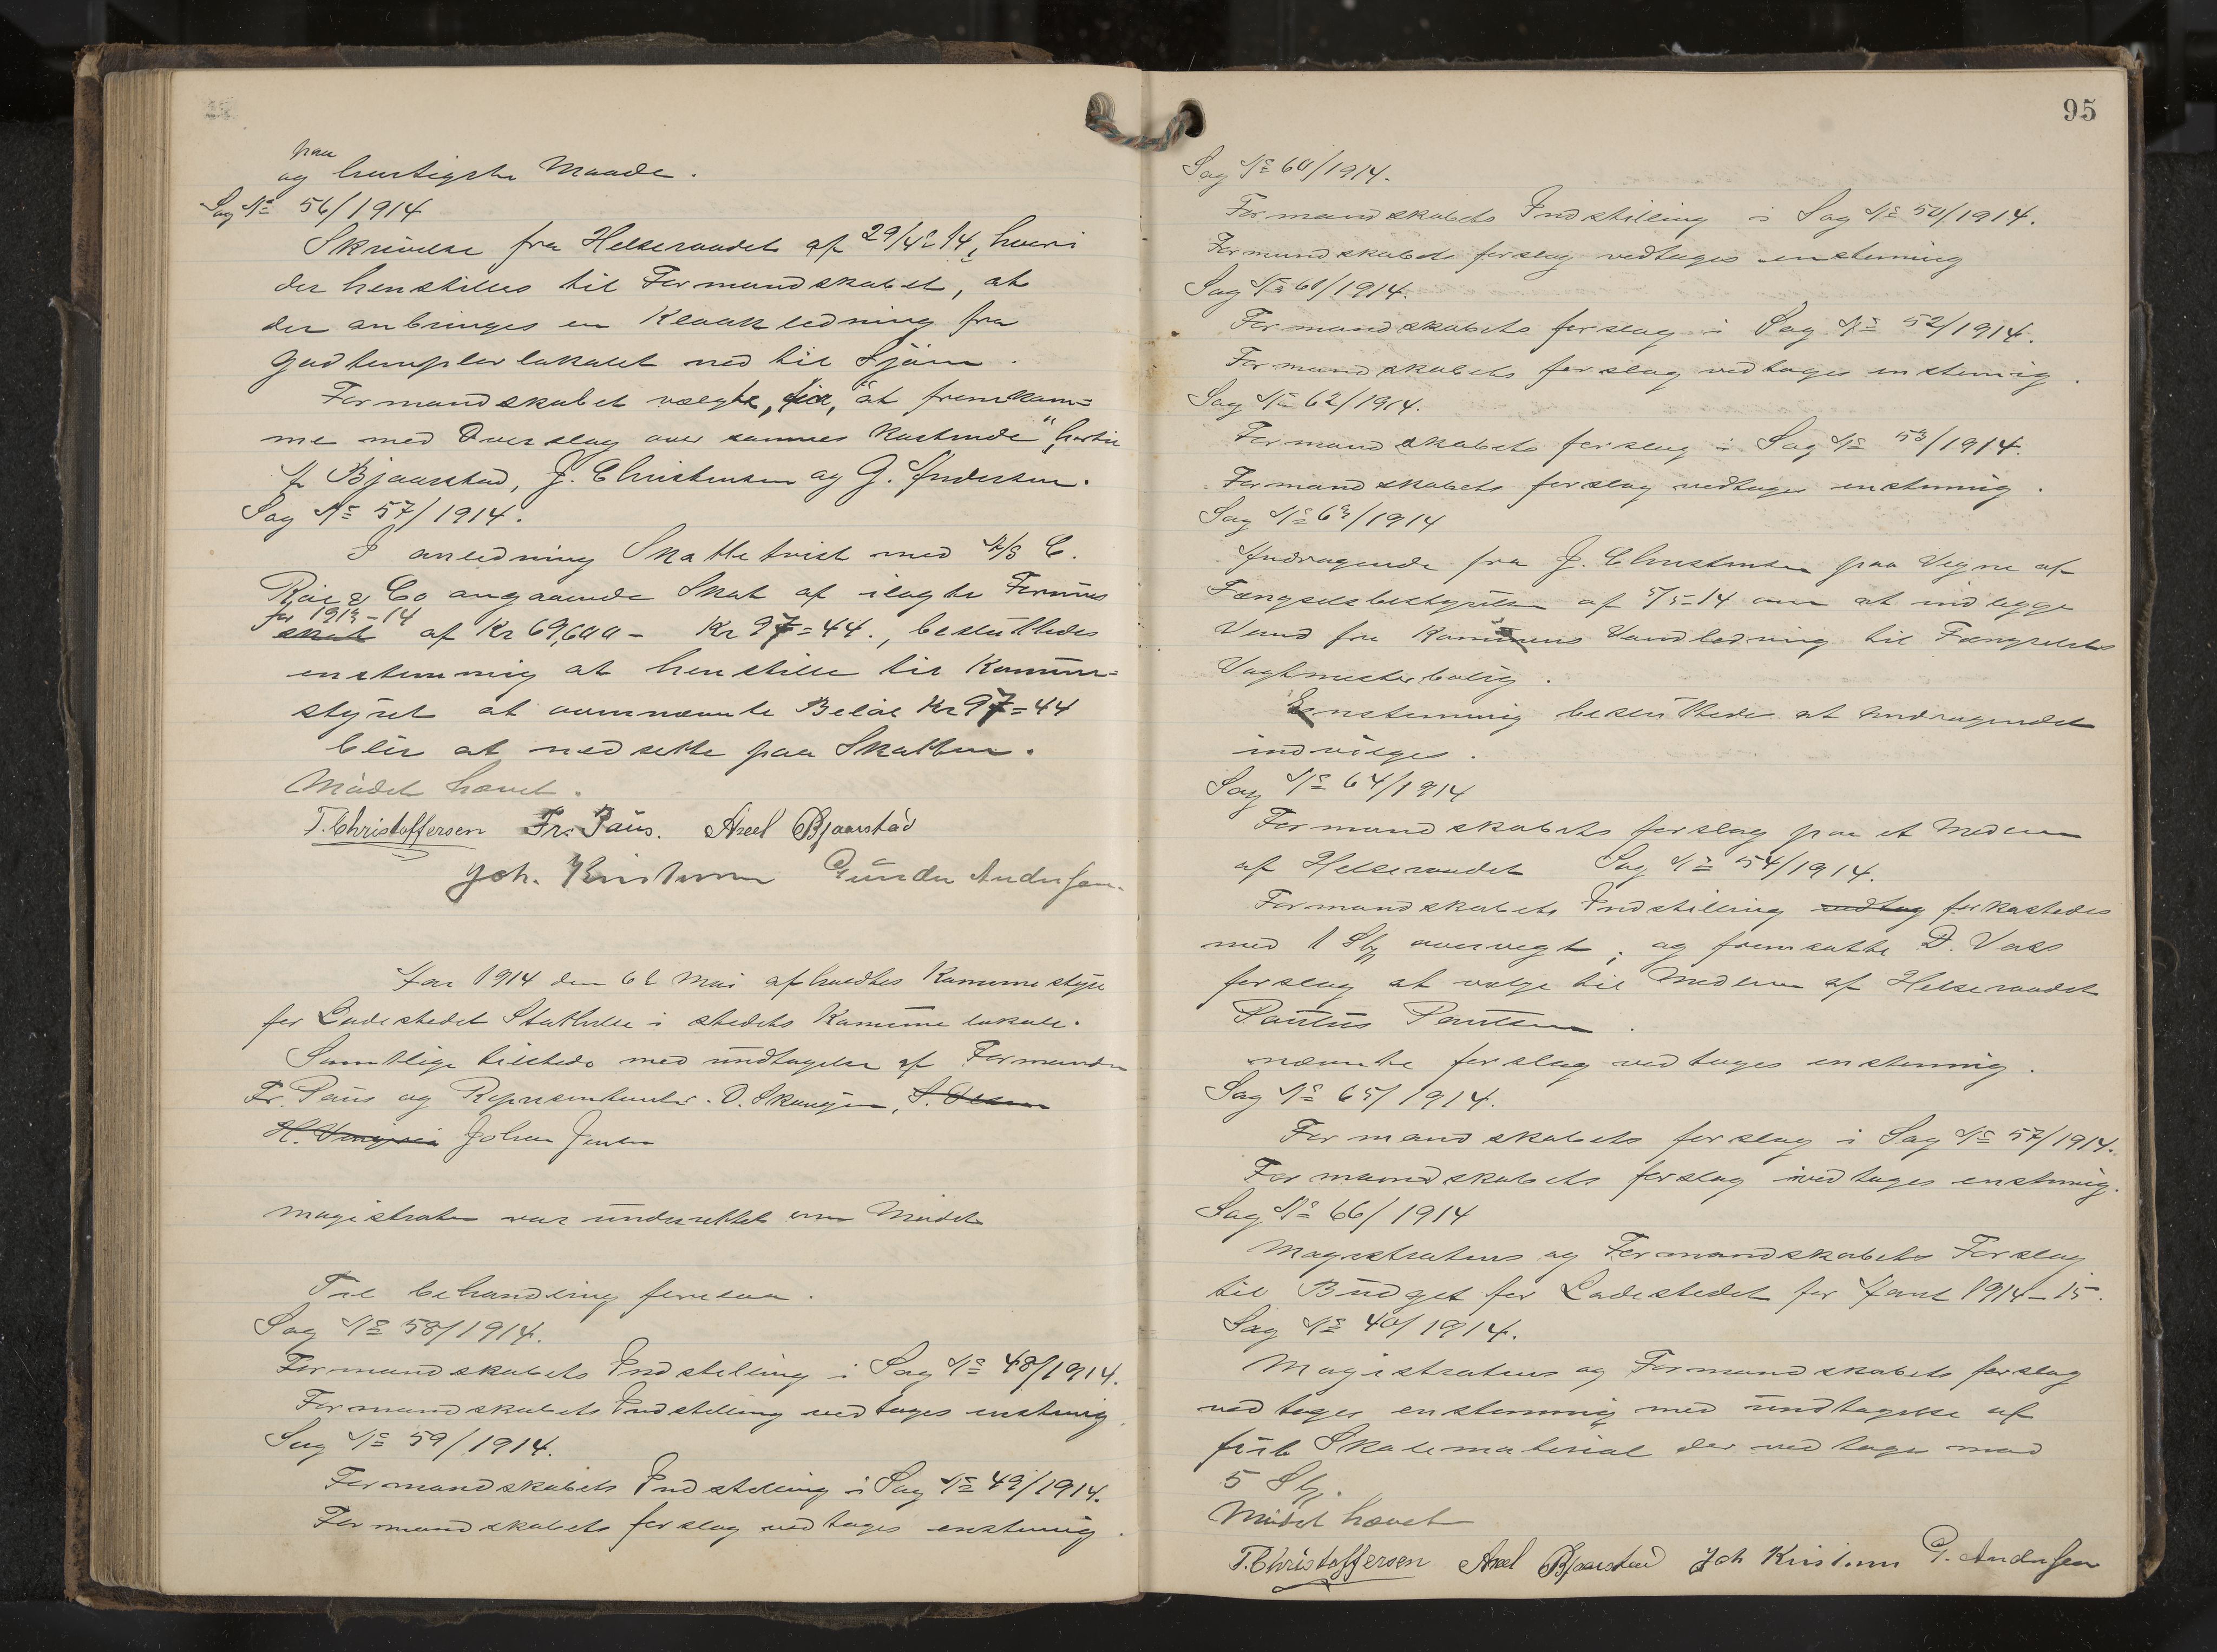 paa
og hurtigste Maade.
Sag No 56/1914
Skrivelse fra Helseraadet af 29/4 14, hvori
der henstilles til Formandskabet, at
der anbringes en Kloakledning fra
Godtemplerlokalet ned til Sjøen.
Formandskabet valgte, for, at fremkom=
me med Overslag over sammes Kostende, hertil
A Bjaarstad, J. Christensen og G. Andersen.
Sag No 57/1914.
I anledning Skattetvist med A/S C.
Riis & Co angaaende Skat af ilagte Formues
for 1913-14
skat af Kr 69,600- Kr 97=44., besluttedes
enstemmig at henstille til Kommune=
styret at ovennævnte Beløb Kr 97=44
blir at nedsette paa Skatten.
Mødet hævet.
T. Christoffersen Fr. Paus. Axel Bjaarstad
Joh. Kristensen Gunder Andersen.
Aar 1914 den 6te Mai afholdtes Kommunestyre
for Ladestedet Stathelle i stedets Kommunelokale.
Samtlige tilstede med undtagelse af Formanden
Fr. Paus og Repræsentanter. O. Skougen, S. Olsen
Johan Jensen
Magistraten var underrettet om Mødet
Til behandling forelaa.
Sag No 58/1914.
Formandskabets Indstilling i Sag No 48/1914.
Formandskabets Indstilling vedtages enstemig.
Sag No 59/1914.
Formandskabets Indstilling i Sag No 49/1914.
Formandskabets forslag vedtages enstemig.
95
Sag No 60/1914.
Formandskabets Indstilling i Sag No 50/1914.
Formandskabets forslag vedtages enstemmig
Sag No 61/1914.
Formandskabets forslag i Sag No 52/1914.
Formandskabets forslag vedtages enstemig.
Sag No 62/1914.
Formandskabets forslag i Sag No 53/1914.
Formandskabets forslag vedtages enstemmig.
Sag No 63/1914
Andragende fra J. Christensen paa Vegne af
Fængselsbestyrelsen af 5/5-14 om at indlegge
Vand fra Kommunens Vandledning til Fængselets
Vagtmesterbolig.
Enstemmig besluttede at Andragendet
indvilges.
Sag No 64/1914
Formandskabets forslag paa et Medlem
af Helseraadet Sag No 54/1914.
Formandskabets Indstilling vedtag forkastedes
med 1 St. overvegt, og fremsatte D. Vass
forslag at valge til Medlem af Helseraadet
Paulus Paulsen.
nævnte forslag vedtages enstemmig.
Sag No 65/1914.
Formandskabets forslag i Sag No 57/1914.
Formandskabets forslag vedtages enstemig.
Sag No 66/1914
Magistratens og Formandskabets Forslag
til Budget for Ladestedet for Aaret 1914-15.
Sag No 40/1914.
Magistratens og Formandskabets forslag
vedtages enstemmig med undtagelse af
frit Skolemateriel der vedtages mod
5 St.
Mødet hævet
T. Christoffersen Axel Bjaarstad Joh Kristensen G. Andersen